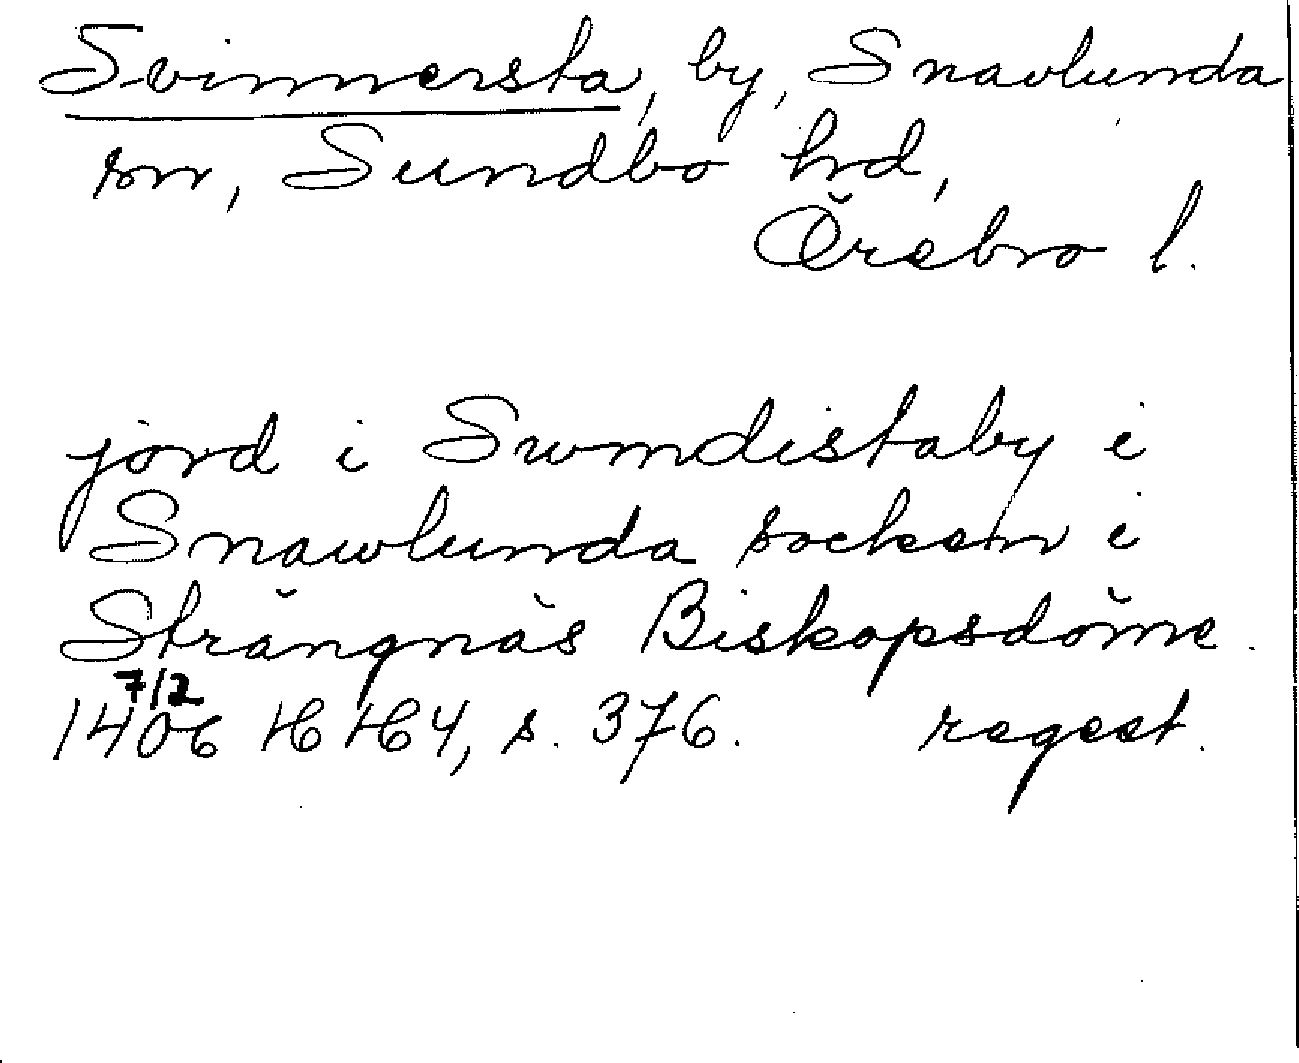 Svinnersta, by, Snavlunda
sn, Sundbo hrd,
Örebro l.
jord i Swmdistaby i
Snawlunda socken i
Strängnäs Biskopsdöme.
7/2
1406 HH 4, s. 376. regest.